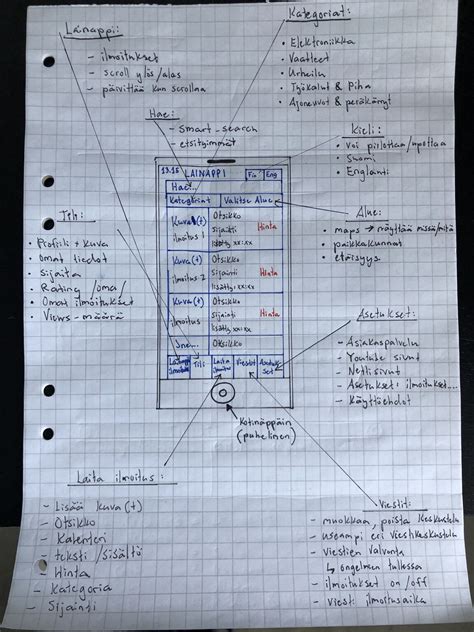 Lainappi:
- ilmoitukset
- scroll ylös/alas
- päivittää kun scrollaa
Kategoriat:
• Elektroniikka
• Vaatteet
• Urheilu
• Työkalut & Piha
• Ajoneuvot & peräkärryt
Hae:
- smart-search
- etsityimmät
Kieli:
• voi piilottaa/upottaa
• Suomi
• Englanti
Alue:
• maps → näyttää missä/mitä
• paikkakunnat
• etäisyys
Tili:
• Profiili + kuva
• Omat tiedot
• Sijainti
• Rating /oma/
• Omat ilmoitukset
• Views-määrä
13.15 LAINAPPI Fin Eng
Hae...
Kategoriat Valitse Alue
Kuva(+) Otsikko
ilmoitus 1 Sijainti Hinta
lisätty xx:xx
Kuva(+) Otsikko
ilmoitus 2 Sijainti Hinta
lisätty xx:xx
Kuva(+) Otsikko
ilmoitus Sijainti Hinta
lisätty xx:xx
Otsikko
Tili Laita ilmoitus Viestit Asetukset
Kotinäppäin
(puhelimen)
Asetukset:
- Asiakaspalvelu
- Youtube sivut
- Nettisivut
- Asetukset: ilmoitukset...
- Käyttöehdot
Laita ilmoitus:
- Lisää kuva(+)
- Otsikko
- Kalenteri
- teksti/sisältö
- Hinta
- Kategoria
- Sijainti
Viestit:
- muokkaa, poista keskustelu
- useampi eri viestikeskustelu
- Viestien valvonta
↳ ongelman tullessa
- ilmoitukset on/off
- Viesti ilmoitusaika